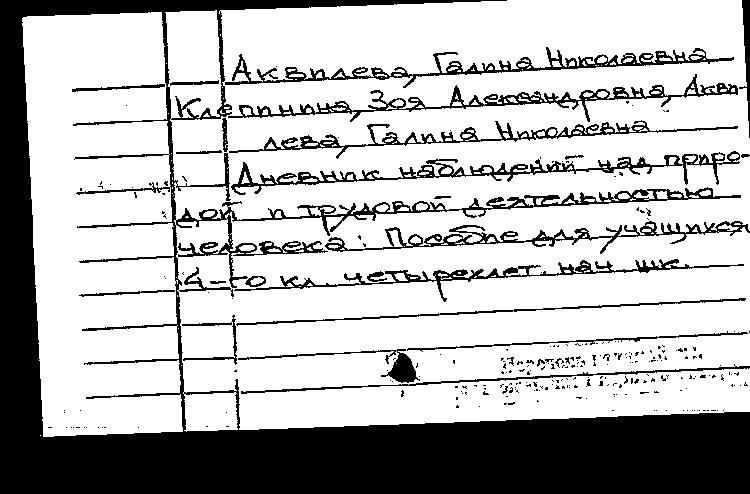 Аквилева, Галина Николаевна
Клепинина, Зоя Александровна, Акви-
лева, Галина Николаевна
Дневник наблюдений над приро-
дой и трудовой деятельностью
человека: Пособие для учащихся
4-го кл. четырехлет. нач. шк.